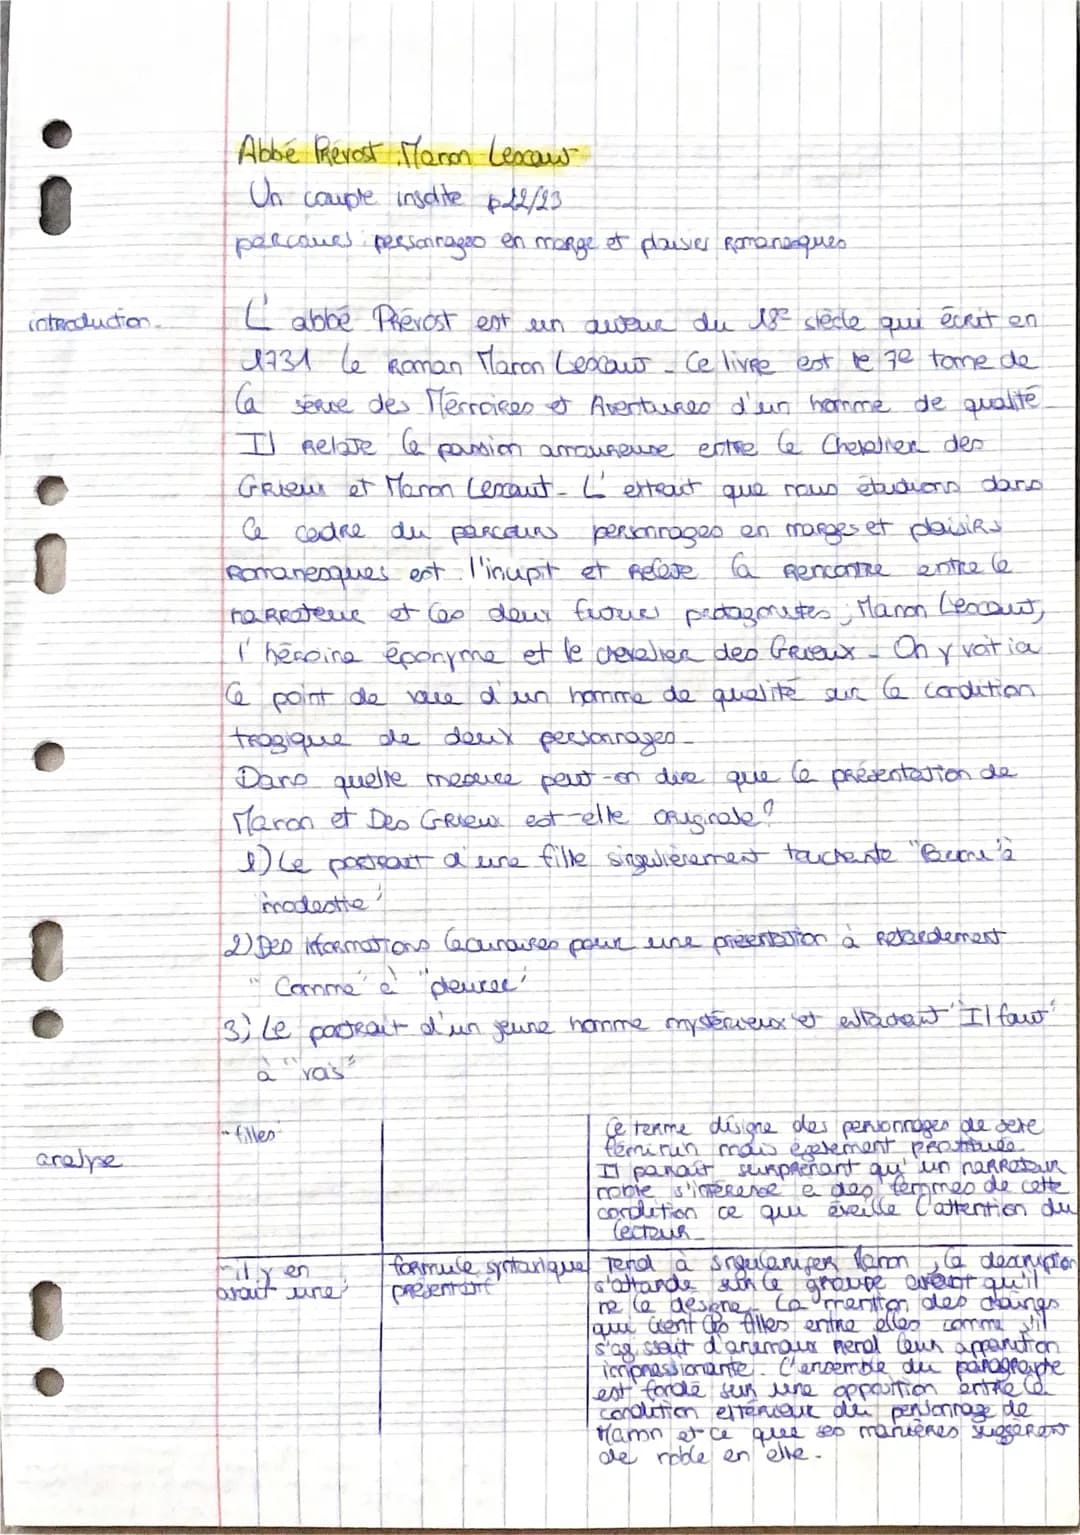 Abbé Prévost, Manon Lescaut
Un couple insolite p22/23
parcours : personnages en marge et plaisirs Romanesques
introduction.
L'abbé Prévost est un auteur du 18e siècle qui écrit en
1731 le Roman Manon Lescaut. Ce livre est le 7e tome de
la série des Mémoires et Aventures d'un homme de qualité
Il Relate la passion amoureuse entre le Chevalier des
Grieux et Manon Lescaut. L'extrait que nous étudions dans
le cadre du parcours personnages en marges et plaisirs
Romanesques est l'incipit et Relate la Rencontre entre le
narrateur et les deux futurs protagonistes, Manon Lescaut,
l'héroïne éponyme et le chevalier des Grieux. On y voit ici
le point de vue d'un homme de qualité sur la condition
tragique de deux personnages.
Dans quelle mesure peut-on dire que la présentation de
Manon et Des Grieux est-elle originale ?
1) Le portrait d'une fille singulièrement touchante "Parmi" à
"modestie"
2) Des informations lacunaires pour une présentation à Retardement
"Comme" à "pleurer"
3) Le portrait d'un jeune homme mystérieux et attachant "Il faut"
à "vais"
analyse
"filles"
Ce terme désigne des personnages de sexe
féminin mais également prostituée.
Il parait surprenant qu'un narrateur
noble s'intéresse à des femmes de cette
condition ce qui éveille l'attention du
lecteur.
"il y en
avait une"
formule syntaxique
présentatif
Tend à singulariser Manon, la description
s'attarde sur le groupe avant qu'il
ne la désigne. La mention des chaines
qui lient les filles entre elles comme s'il
s'agissait d'animaux Rend leur apparition
impressionante. L'ensemble du paragraphe
est fondé sur une opposition entre la
condition extérieur du personnage de
Manon et ce que ses manières suggèrent
de noble en elle.